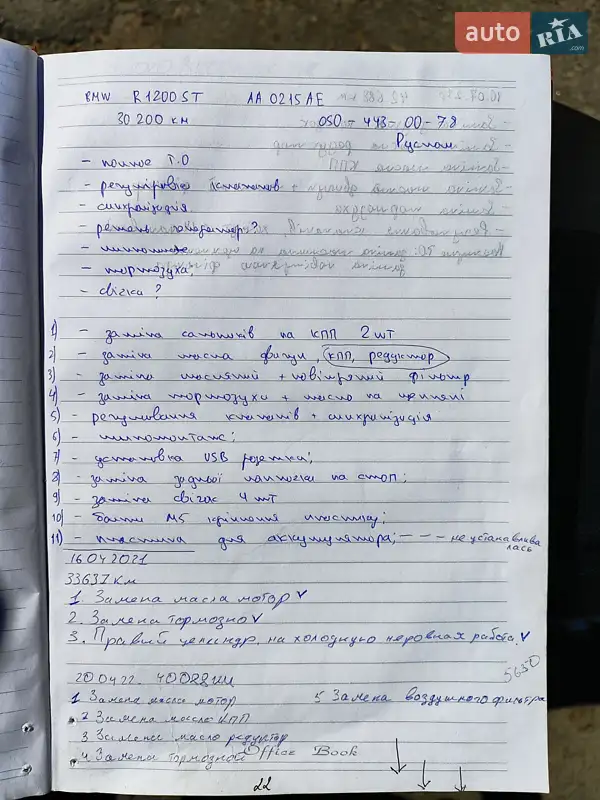 auto RIA.com
BMW R1200ST AA 0215 AE
30 200 км 050 - 443 - 00-78
Руслан
- полное Т.О
- регулировка клапанов +
- синхронізація
- ?
- шиномонтаж
- тормозуха;
- свічки ?
1) - заміна сальників на КПП 2 шт
2) - заміна масла двигун, КПП, редуктор
3) - заміна масляний + повітряний фільтр
4) - заміна тормозухи + масло на щепленні
5) - регулювання клапанів + синхронізація
6) - шиномонтаж;
7) - установка USB розетки;
8) - заміна задньої лампочки на стоп;
9) - заміна свічас 4 шт
10) - болти М5 кріплення пластику;
11) - пластина для аккумулятора; - - - не устанавлива
лась
16.04.2021
33637 км
1. Замена масла мотор ✓
2. Замена тормозно ✓
3. Правый цилиндр, на холодную неровная работа. ✓
5650
20 04 22. 40028 км
1 Замена масла мотор 5 Замена воздушного фильтра
2 Замена масло КПП
3 Замена масло редуктор
4 Замена тормозной
Office Book
22